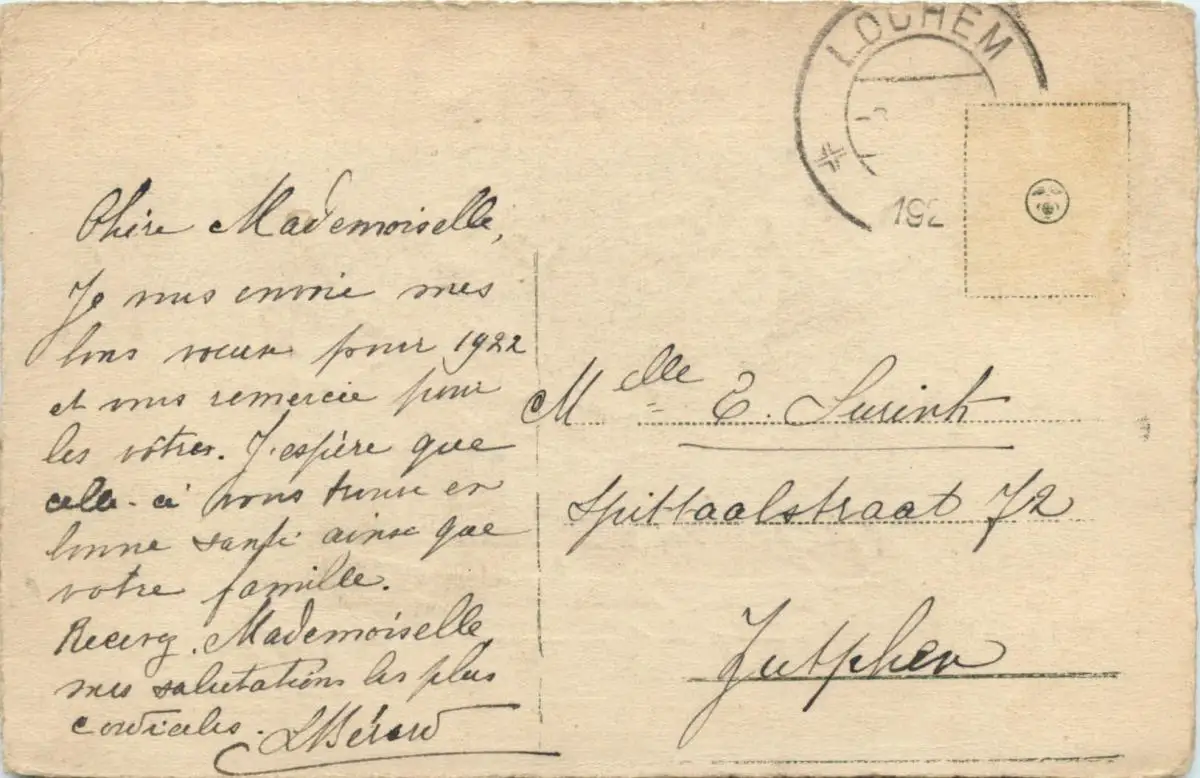 LOCHEM
192
Chère Mademoiselle,
Je vous envoie mes
bons vœux pour 1922
et vous remercie pour
les vôtres. J'espère que
celle-ci vous trouve en
bonne santé ainsi que
votre famille.
Recevez, Mademoiselle,
mes salutations les plus
cordiales.
LBérard
Melle E. Surink
Spittaalstraat 72
Zutphen